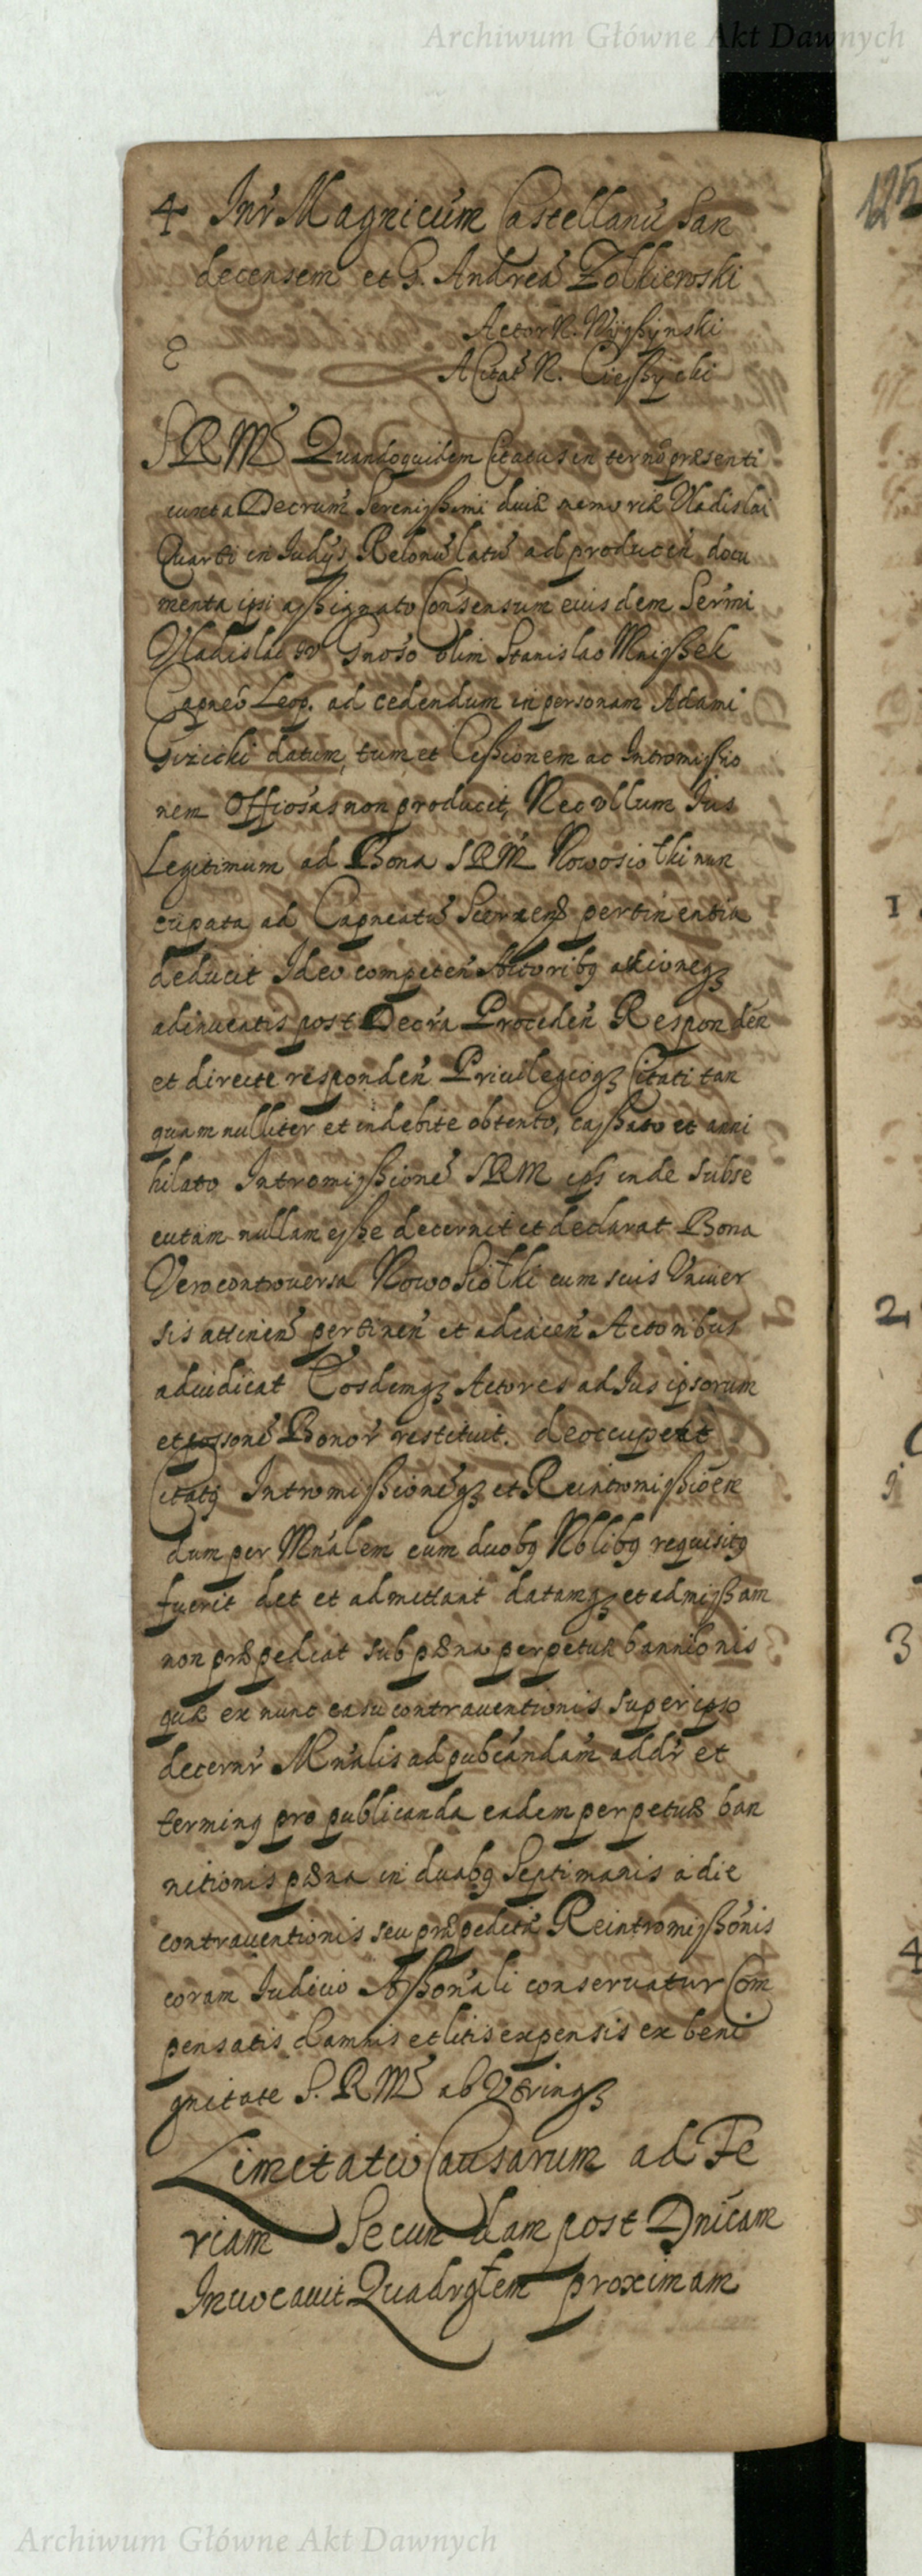 Archiwum Główne Akt Dawnych
125
4 Inr Magnicum Castellanu San
decensem et G. Andrea Zolkiewski
Actor N. Wyssynski
A Citat N. Ciessycki
S R Ms Quandoquidem Citatus in terno præsenti
iuxta Decrum Serenissimi divæ memoriæ Vladislai
Quarti in Judijs Relonu latu ad producen docu
menta ipsi assignato Consensum eius dem Sermi
Vladislai IV Gnoso olim Stanislao Mnissek
Capneo Leop. ad cedendum in personam Adami
Gizicki datum, tum et Cessionem ac Intromissio
nem Offiosas non producit, Nec ullum Jus
Legitimum ad Bona SRM Nowosiolki nun
cupata ad Capneatu pertinentia
deducit Ideo competen Actoribq actioneqz
adinventis post Decra Proceden Responden
et directe responden Privilegioqz Citati tan
quam nulliter et indebite obtento, cassato et anni
hilato Intromissione SRM eps inde subse
cutam nullam esse decernit et declarat Bona
Vero controversa Nowosiolki cum suis Univer
sis attinen pertinen et adiacen Actoribus
adiudicat Eosdemqz Actores ad Jus ipsorum
et possone Bonor restituit. deoccupent
Citatq Intromissioneqz et Reintromissioen
dum per Mnalem cum duobq Nblibq requisitq
fuerit det et admittant datamqz et admissam
non præpediat sub pæna perpetuæ bannionis
quæ ex nunc casu contraventionis super ipso
decernr Mnalis ad pubcandam addr et
terminq pro publicanda eadem perpetuæ ban
nitionis pæna in duabq Septimanis a die
contraventionis seu præpeditæ Reintromissonis
coram Judicio Assonali conservatur Com
pensatis damnis et litis expensis ex beni
gnitate S. R Ms ab Utrinqz
Limitatio Causarum ad Fe
riam Secundam post Dnicam
Invocavit Quadrglem proximam
1
2
3
4
Archiwum Główne Akt Dawnych